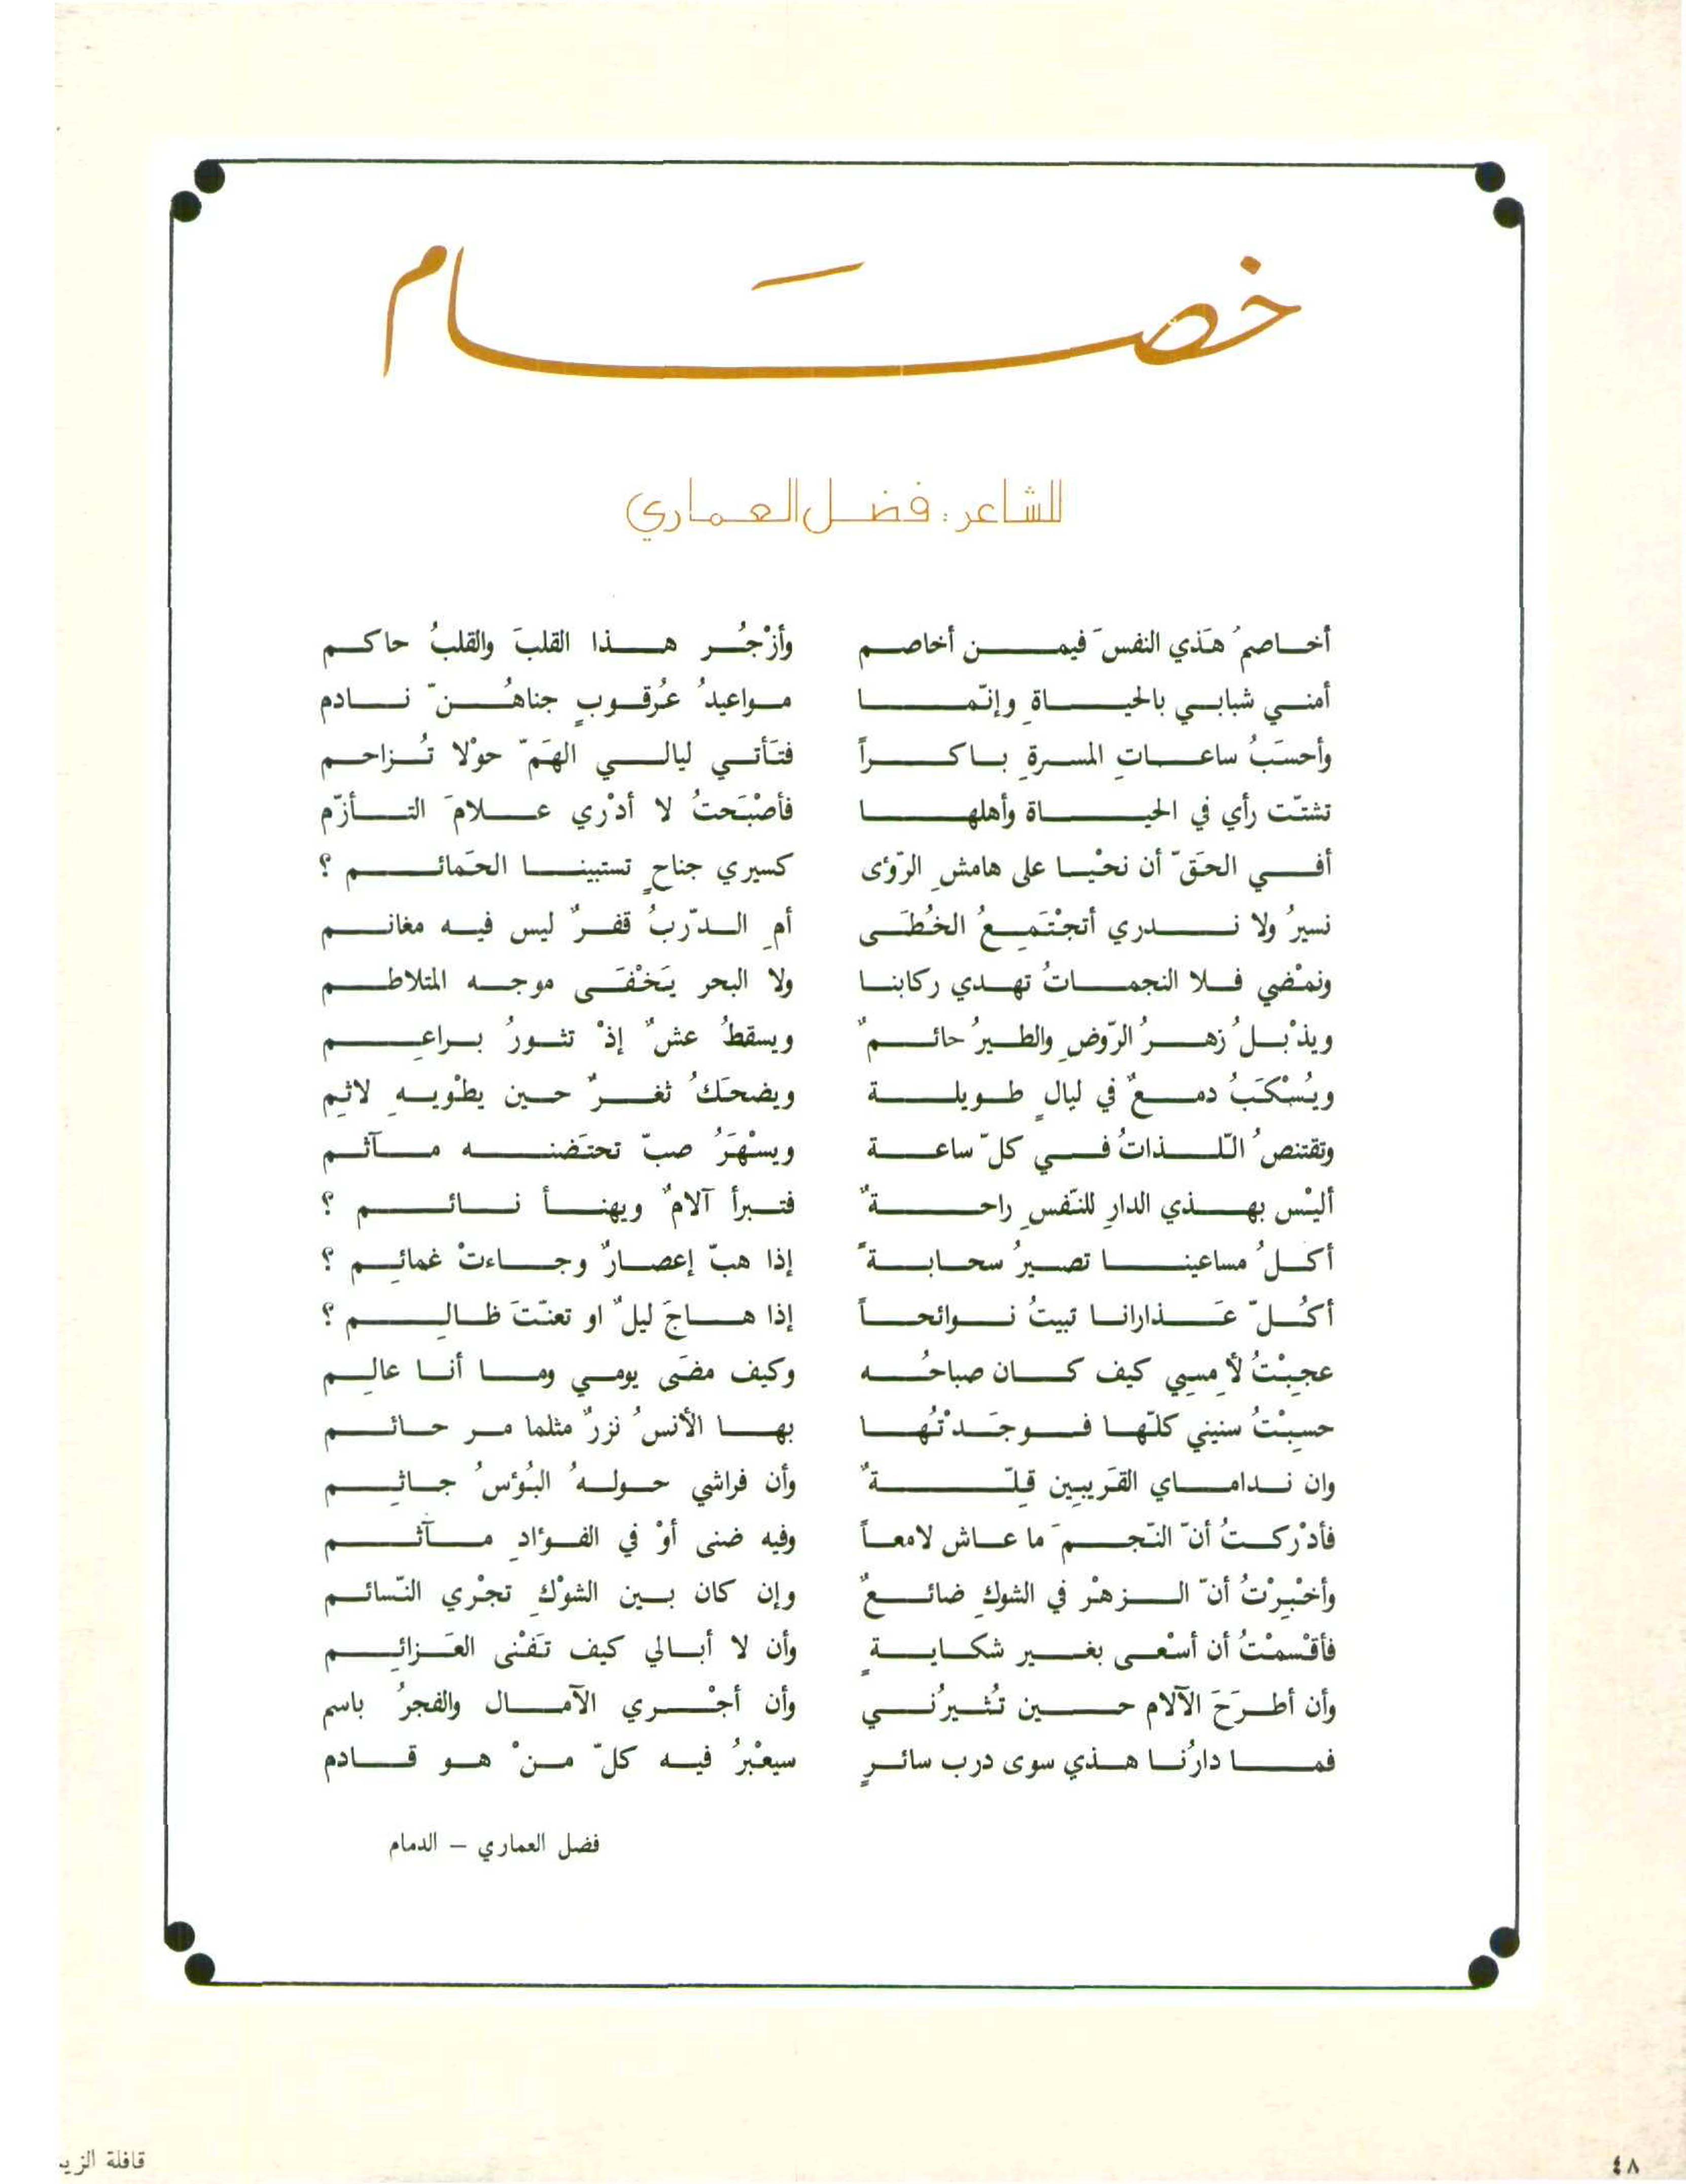 خصَام
للشاعر: فضل العماري
أخاصمُ هَذي النفسَ فيمن أخاصم وأزْجُر هذا القلبَ والقلبُ حاكم
أمني شبابي بالحياةِ وإنّما مواعيدُ عُرقوبٍ جناهُنّ نادم
وأحسَبُ ساعاتِ المسرةِ باكراً فتَأتي ليالي الهَمّ حوْلا تُزاحم
تشتّت رأي في الحياة وأهلها فأصْبَحتُ لا أدْري علامَ التأزّم
أفي الحَقّ أن نحْيا على هامشِ الرّؤى كسيري جناحٍ تستبينا الحَمائم ؟
نسيرُ ولا ندري أتجْتَمِعُ الخُطَى أمِ الدّربُ قفرٌ ليس فيه مغانم
ونمْضي فلا النجماتُ تهدي ركابنا ولا البحر يَخْفَى موجه المتلاطم
ويذْبلُ زهرُ الرّوضِ والطيرُ حائمٌ ويسقطُ عشٌ إذْ تثورُ براعِم
ويُسْكَبُ دمعٌ في ليالٍ طويلة ويضحَكُ ثغرٌ حين يطْويهِ لاثم
وتقتنصُ الّلذاتُ في كلّ ساعة ويسْهَرُ صبّ تحتَضنه مآثم
أليْس بهذي الدارِ للنّفسِ راحةٌ فتبرأ آلامٌ ويهنأ نائم ؟
أكلُ مساعينا تصيرُ سحابةً إذا هبّ إعصارٌ وجاءتْ غمائِم ؟
أكُلّ عَذارانا تبيتُ نوائحاً إذا هاجَ ليلٌ او تعنّتَ ظالِم ؟
عجبْتُ لأمسِي كيف كان صباحُه وكيف مضَى يومي وما أنا عالِم
حسبْتُ سنيني كلّها فوجَدْتُها بها الأنسُ نزرٌ مثلما مر حائم
وان نداماي القَريبين قِلّةٌ وأن فراشي حولهُ البُؤسُ جاثِم
فأدْركتُ أنّ النّجمَ ما عاش لامعاً وفيه ضنى أوْ في الفؤادِ مآثم
وأخْبِرْتُ أنّ الزهْر في الشوكِ ضائعٌ وإن كان بين الشوْكِ تجْري النّسائم
فأقْسمْتُ أن أسْعى بغير شكايةٍ وأن لا أبالي كيف تَفْنى العَزائِم
وأن أطرَحَ الآلام حين تُثيرُني وأن أجْري الآمال والفجرُ باسم
فما دارُنا هذي سوى درب سائرٍ سيعْبرُ فيه كلّ منْ هو قادم
فضل العماري – الدمام
٤٨
قافلة الزي